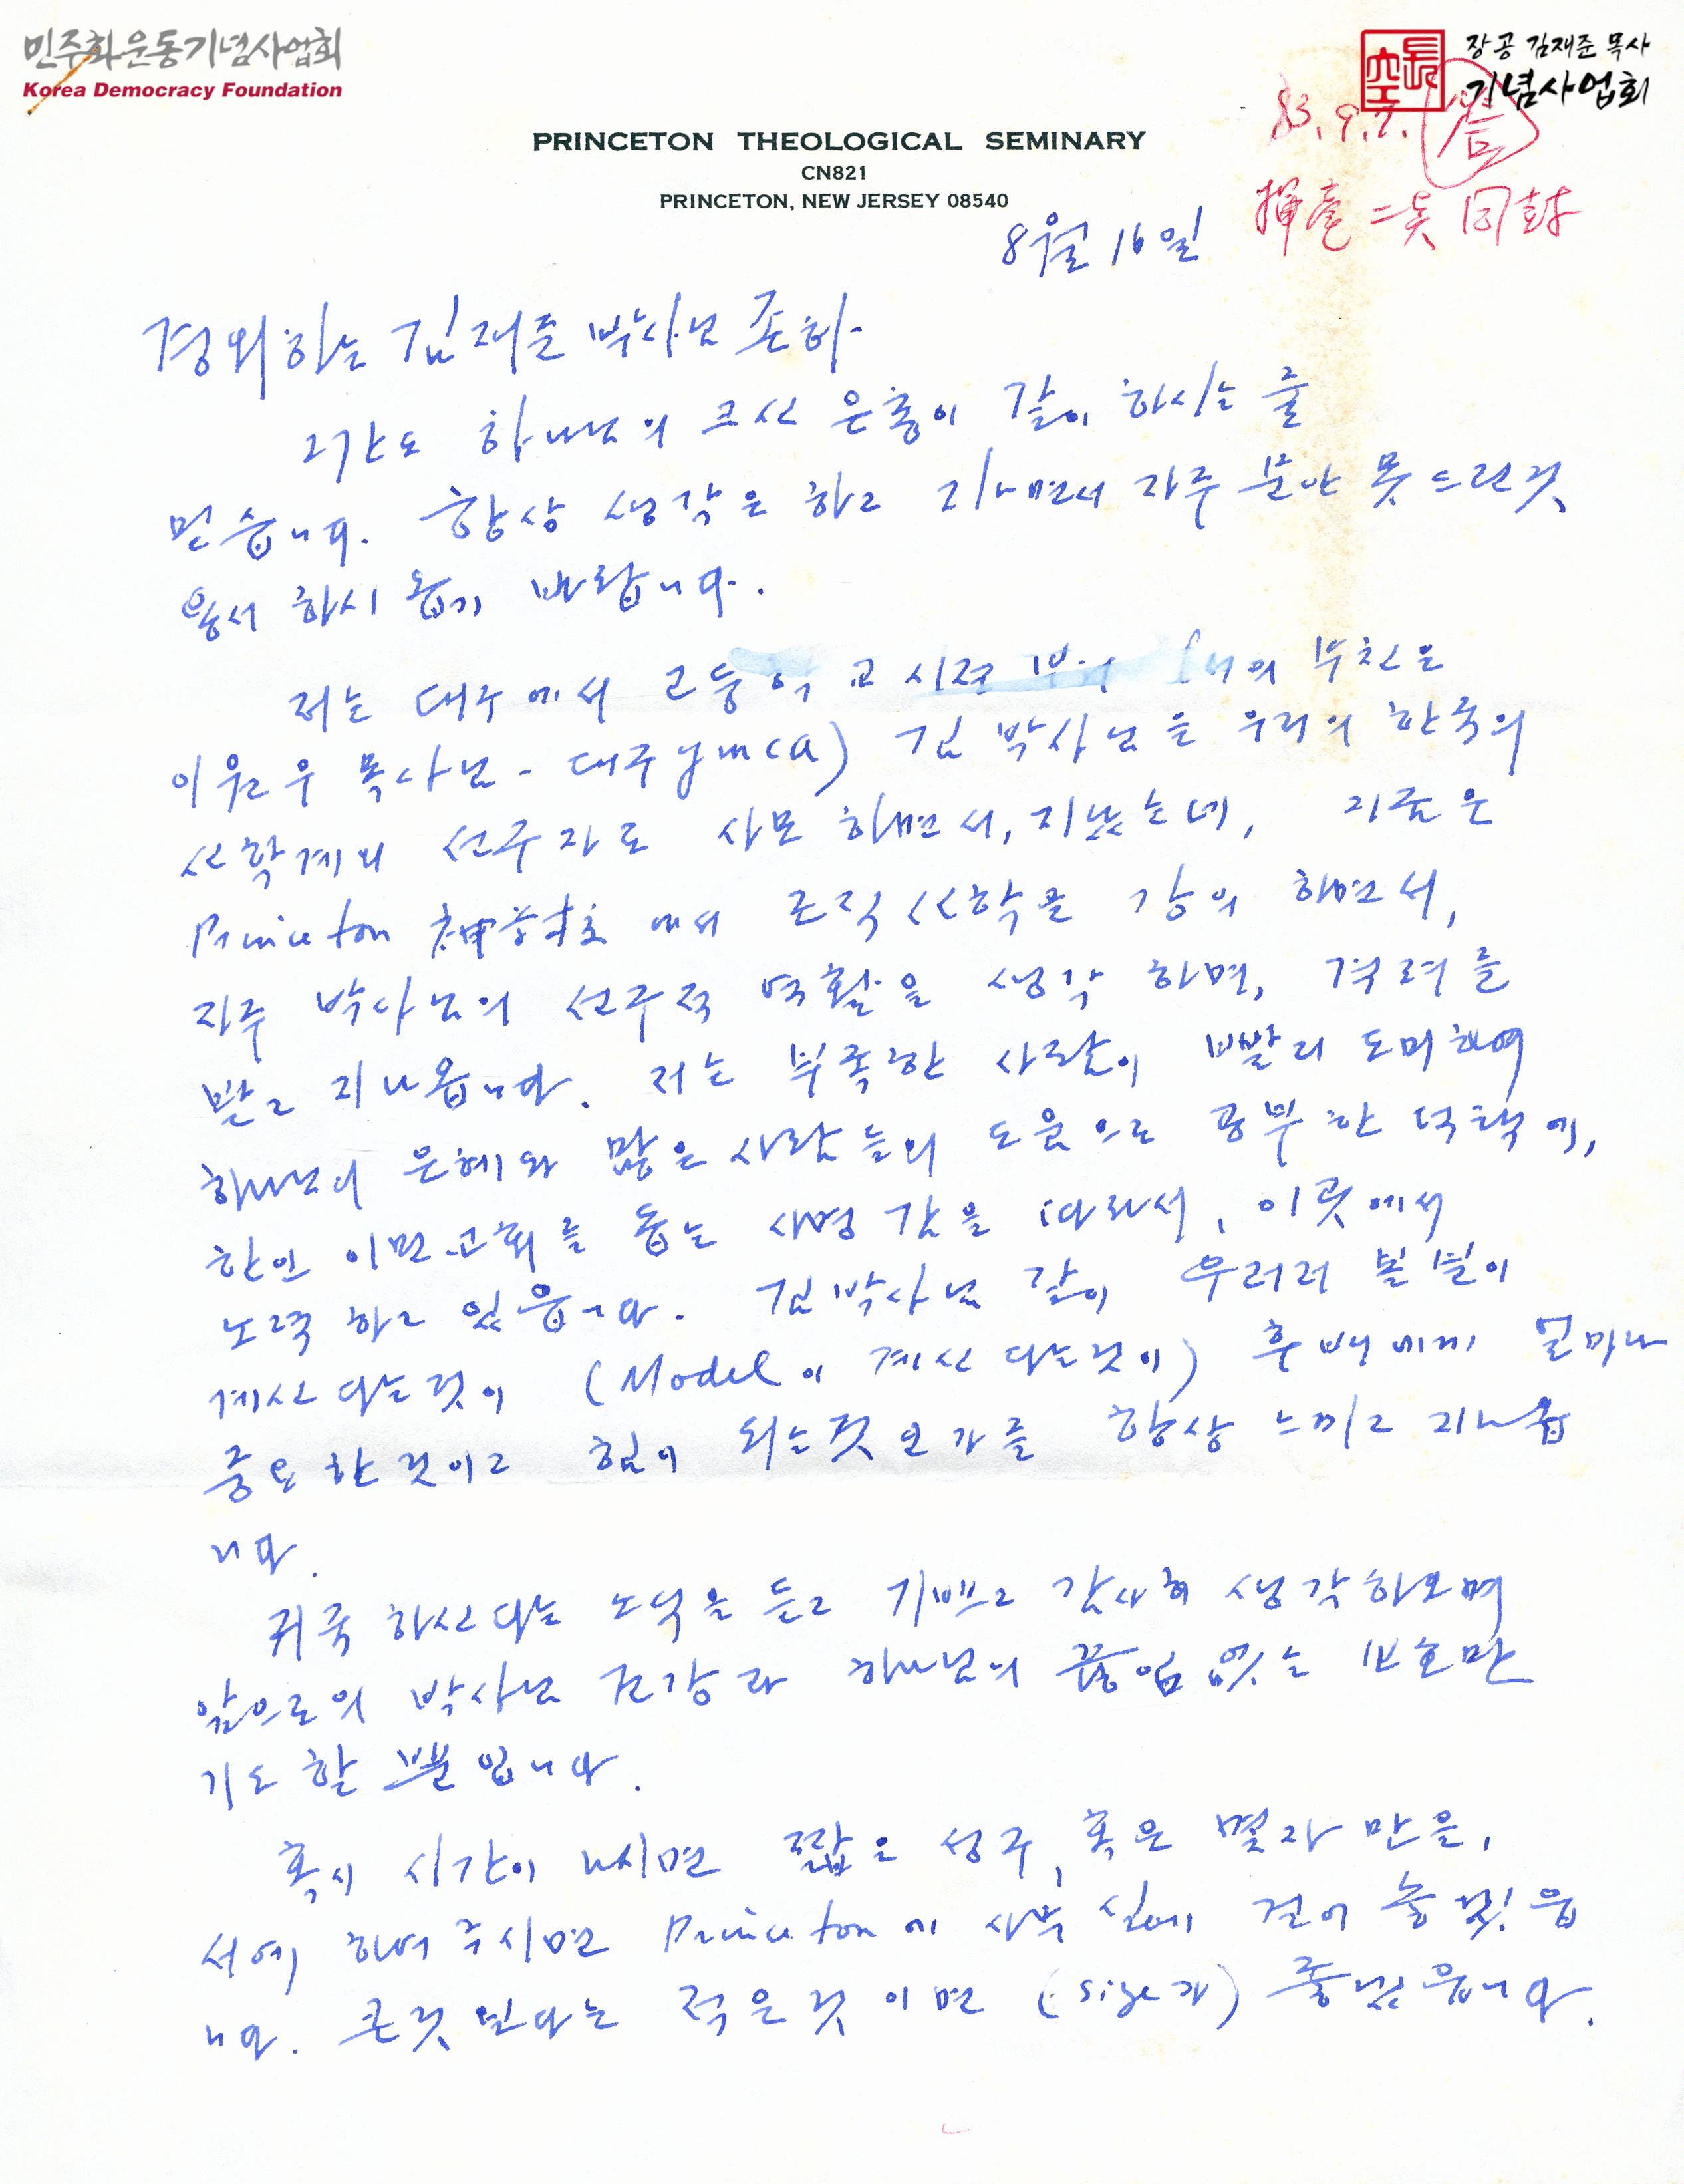 민주화운동기념사업회
Korea Democracy Foundation
장공 김재준 목사
기념사업회
長空
83. 9. 7. 答
揮毫 二矣 同封
PRINCETON THEOLOGICAL SEMINARY
CN821
PRINCETON, NEW JERSEY 08540
8월 16일
경외하는 김재준 박사님 존하.
그간도 하나님의 크신 은총이 같이 하시는 줄
믿습니다. 항상 생각은 하고 지나면서 자주 문안 못드린것
용서 하시옵기 바랍니다.
저는 대구에서 고등학교 시절 부터 (저의 부친은
이원우 목사님 - 대구 ymca) 김 박사님을 우리의 한국의
신학계의 선구자로 사모 하면서, 지냈는데, 지금은
Princeton 神学校 에서 조직신학을 강의 하면서,
자주 박사님의 선구적 역활을 생각 하며, 격려를
받고 지나옵니다. 저는 부족한 사람이 빨리 도미하여
하나님의 은혜와 많은 사람들의 도움으로 공부한 덕택에,
한인 이민 교회를 돕는 사명감을 따라서, 이곳에서
노력 하고 있읍니다. 김박사님 같이 우러러 볼 분이
계신다는것이 (Model이 계신다는것이) 후배에게 얼마나
중요한것이고 힘이 되는것인가를 항상 느끼고 지나옵
니다.
귀국 하신다는 소식을 듣고 기쁘고 감사히 생각하오며
앞으로의 박사님 건강과 하나님의 끊임없는 보호만
기도할 뿐입니다.
혹시 시간이 나시면 짧은 성구, 혹은 몇자 만을,
서예 하여주시면 Princeton에 사무실에 걸어 놓겠읍
니다. 큰것 보다는 적은것이면 (size가) 좋겠읍니다.